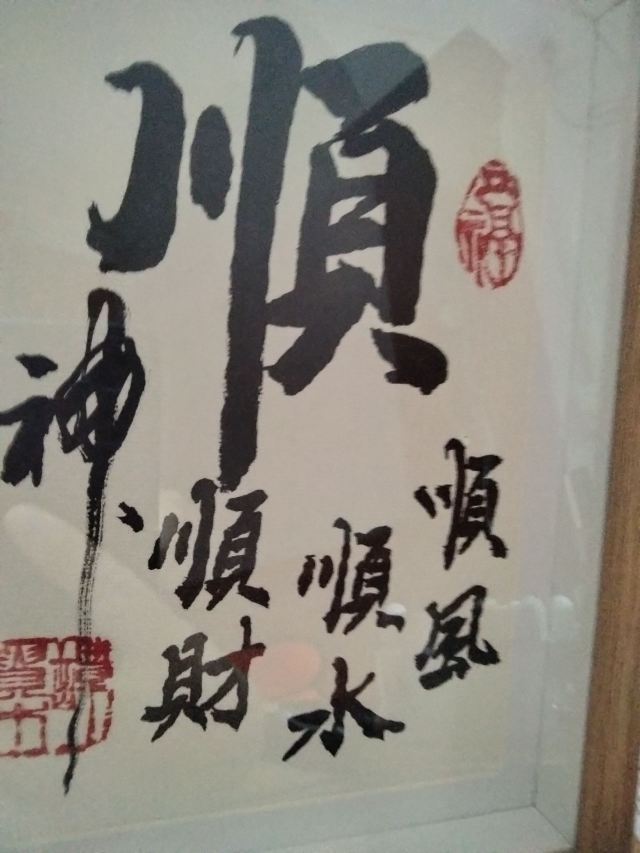 順
順風
順水
順財
神